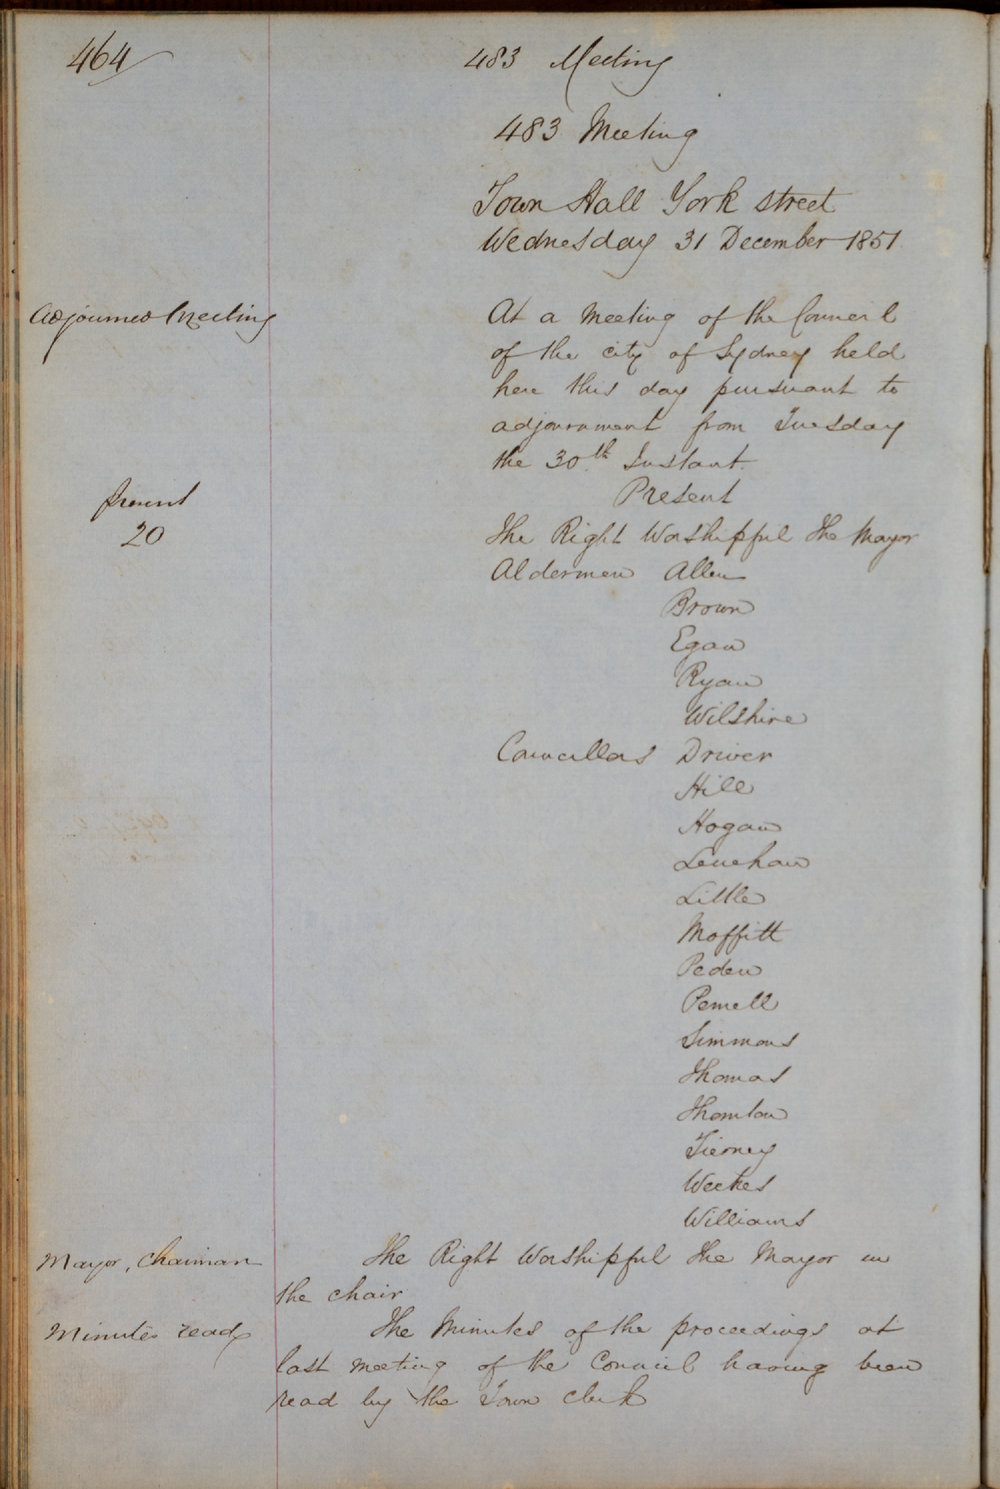 464
483 Meeting
483 Meeting
Town Hall York street
Wednesday 31 December 1851
Adjourned Meeting
At a Meeting of the Council
of the city of Sydney held
here this day pursuant to
adjournment from Tuesday
the 30th Instant.
Present
Present
20
The Right Worshipful The Mayor
Aldermen Allen
Brown
Egan
Ryan
Wilshire
Councillors Driver
Hill
Hogan
Lenehan
Little
Moffitt
Peden
Pemell
Simmons
Thomas
Thornton
Tierney
Weekes
Williams
Mayor, Chairman
The Right Worshipful the Mayor in
the chair
Minutes read
The Minutes of the proceedings at
last meeting of the Council having been
read by the Town Clerk